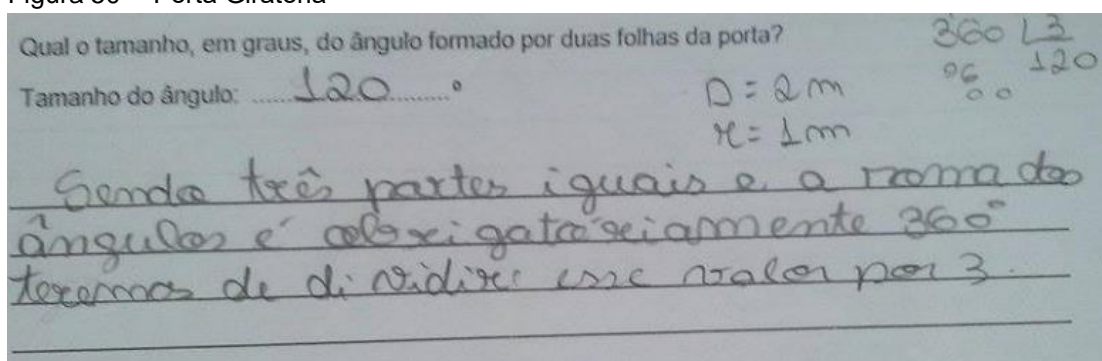 Qual o tamanho, em graus, do ângulo formado por duas folhas da porta?
Tamanho do ângulo: ......120..........°
360 3
06 120
00
D = 2m
r = 1m
Sendo três partes iguais e a soma dos
ângulos é obrigatoriamente 360°
teremos de dividir esse valor por 3.